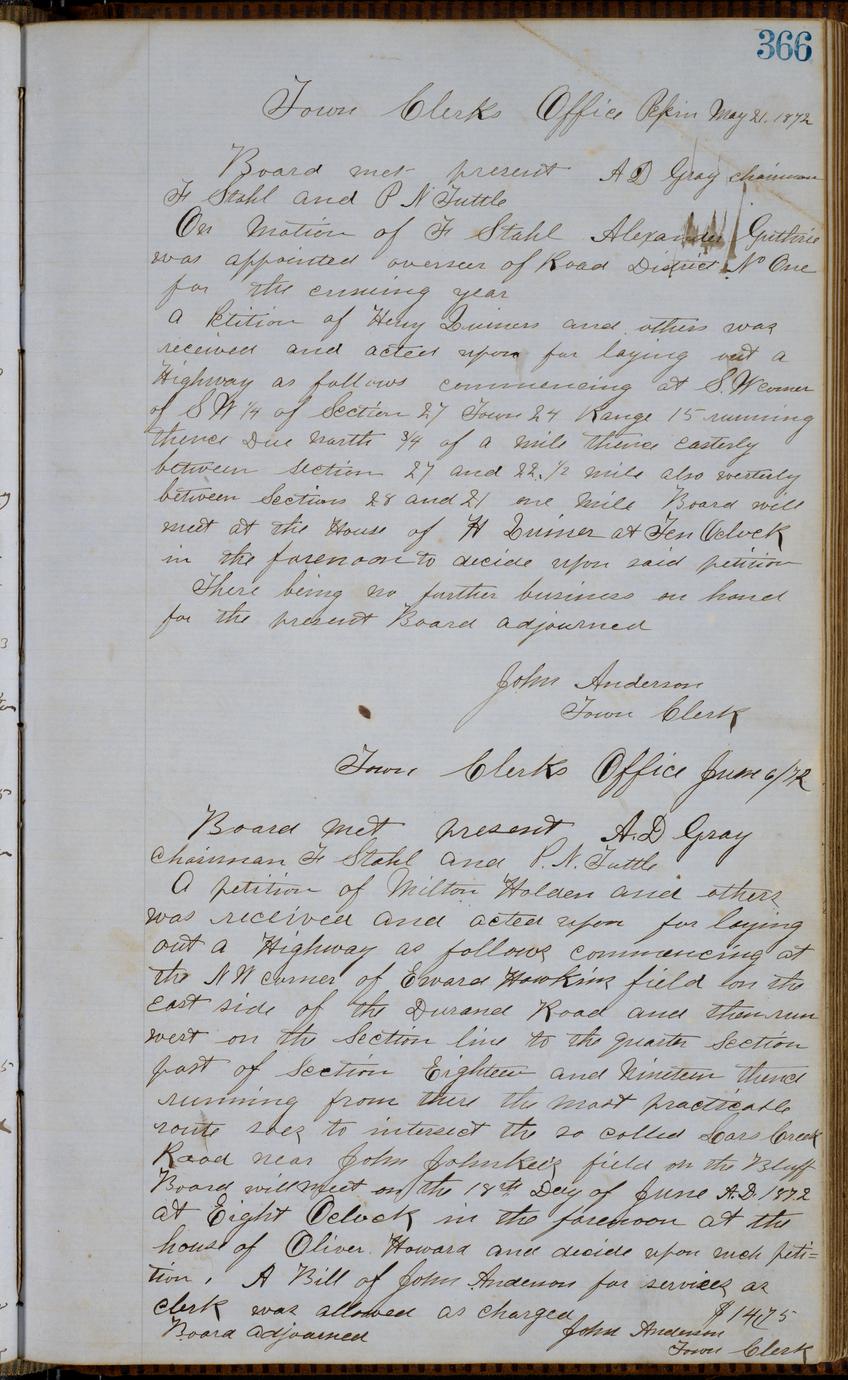 366
Town Clerks Office Pepin May 21. 1872
Board met present A D Gray chairman
F Stahl and P N Tuttle
On Motion of F Stahl Alexander Guthrie
was appointed overseer of Road District No One
for the ensuing year
A Petition of Henry Quiners and others was
received and acted upon for laying out a
Highway as follows commencing at S.W corner
of S W 1/4 of Section 27 Town 24 Range 15 running
thence Due North 3/4 of a mile thence easterly
between section 27 and 22. 1/2 mile also westerly
between Sections 28 and 21 one mile Board will
meet at the House of H Quiner at Ten Oclock
in the forenoon to decide upon said petition
There being no further business on hand
for the present Board adjourned
John Anderson
Town Clerk
Town Clerks Office June 6/72
Board met present A.D Gray
Chairman F Stahl and P. N. Tuttle
A petition of Milton Holden and others
was received and acted upon for laying
out a Highway as follows commencing at
the N W corner of Eward Hawkins field on the
east side of the Durand Road and then run
west on the Section line to the quarter Section
post of Section Eighteen and Nineteen thence
running from there the most practicable
route to intersect the so called Creek
Road near John field on the Bluff
Board will meet on the 18th Day of June A.D. 1872
at Eight Oclock in the forenoon at the
house of Oliver Howard and decide upon such peti=
tion. A Bill of John Anderson for services as
clerk was allowed as charged $14.75
Board adjourned John Anderson
Town Clerk